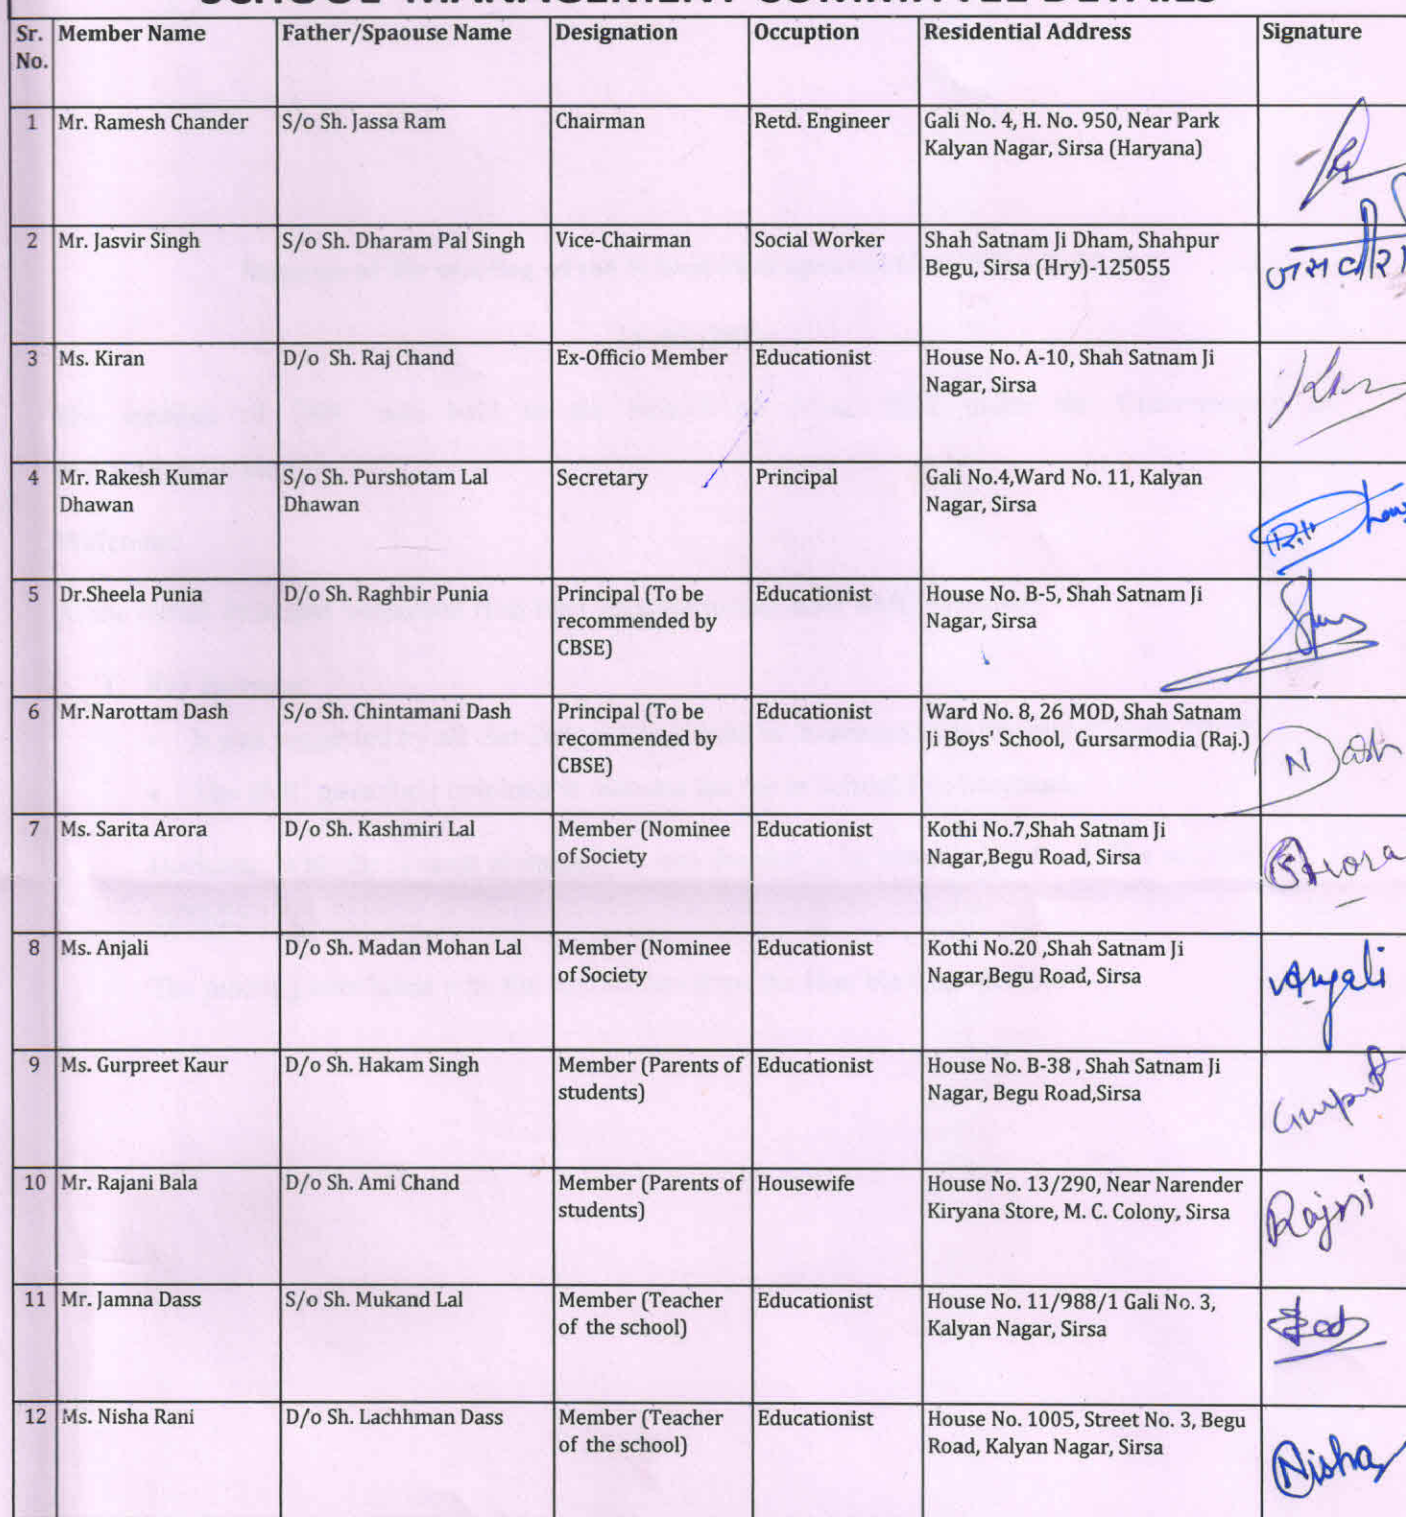 SCHOOL MANAGEMENT COMMITTEE DETAILS
Sr. No. Member Name Father/Spaouse Name Designation Occuption Residential Address Signature
1 Mr. Ramesh Chander S/o Sh. Jassa Ram Chairman Retd. Engineer Gali No. 4, H. No. 950, Near Park
Kalyan Nagar, Sirsa (Haryana)
2 Mr. Jasvir Singh S/o Sh. Dharam Pal Singh Vice-Chairman Social Worker Shah Satnam Ji Dham, Shahpur
Begu, Sirsa (Hry)-125055
3 Ms. Kiran D/o Sh. Raj Chand Ex-Officio Member Educationist House No. A-10, Shah Satnam Ji
Nagar, Sirsa
4 Mr. Rakesh Kumar S/o Sh. Purshotam Lal Secretary Principal Gali No.4,Ward No. 11, Kalyan
Dhawan Dhawan Nagar, Sirsa
5 Dr.Sheela Punia D/o Sh. Raghbir Punia Principal (To be Educationist House No. B-5, Shah Satnam Ji
recommended by Nagar, Sirsa
CBSE)
6 Mr.Narottam Dash S/o Sh. Chintamani Dash Principal (To be Educationist Ward No. 8, 26 MOD, Shah Satnam
recommended by Ji Boys' School, Gursarmodia (Raj.) N Dash
CBSE)
7 Ms. Sarita Arora D/o Sh. Kashmiri Lal Member (Nominee Educationist Kothi No.7,Shah Satnam Ji
of Society Nagar,Begu Road, Sirsa SArora
8 Ms. Anjali D/o Sh. Madan Mohan Lal Member (Nominee Educationist Kothi No.20 ,Shah Satnam Ji
of Society Nagar,Begu Road, Sirsa Anjali
9 Ms. Gurpreet Kaur D/o Sh. Hakam Singh Member (Parents of Educationist House No. B-38 , Shah Satnam Ji
students) Nagar, Begu Road,Sirsa
10 Mr. Rajani Bala D/o Sh. Ami Chand Member (Parents of Housewife House No. 13/290, Near Narender
students) Kiryana Store, M. C. Colony, Sirsa Rajni
11 Mr. Jamna Dass S/o Sh. Mukand Lal Member (Teacher Educationist House No. 11/988/1 Gali No. 3,
of the school) Kalyan Nagar, Sirsa
12 Ms. Nisha Rani D/o Sh. Lachhman Dass Member (Teacher Educationist House No. 1005, Street No. 3, Begu
of the school) Road, Kalyan Nagar, Sirsa Nisha